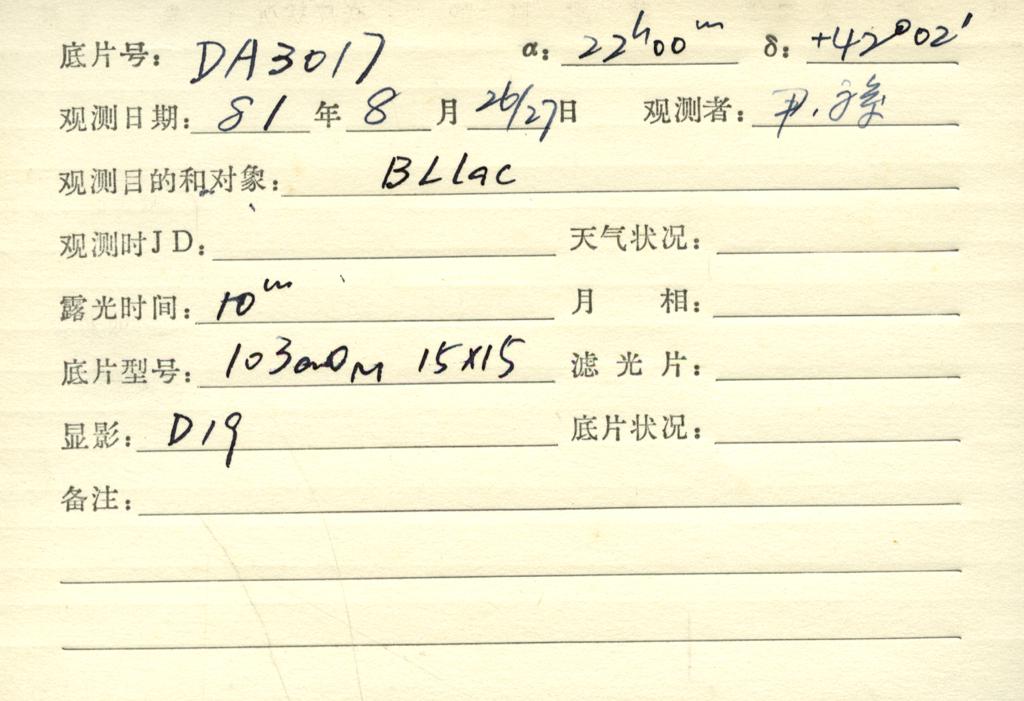 底片号: DA3017 α: 22ʰ00ᵐ δ: +42°02′
观测日期: 81 年 8 月 26/27 日 观测者: 尹.
观测目的和对象: BLlac
观测时JD: 天气状况:
露光时间: 10ᵐ 月 相:
底片型号: 103aO 15X15 滤 光 片:
显影: D19 底片状况:
备注: